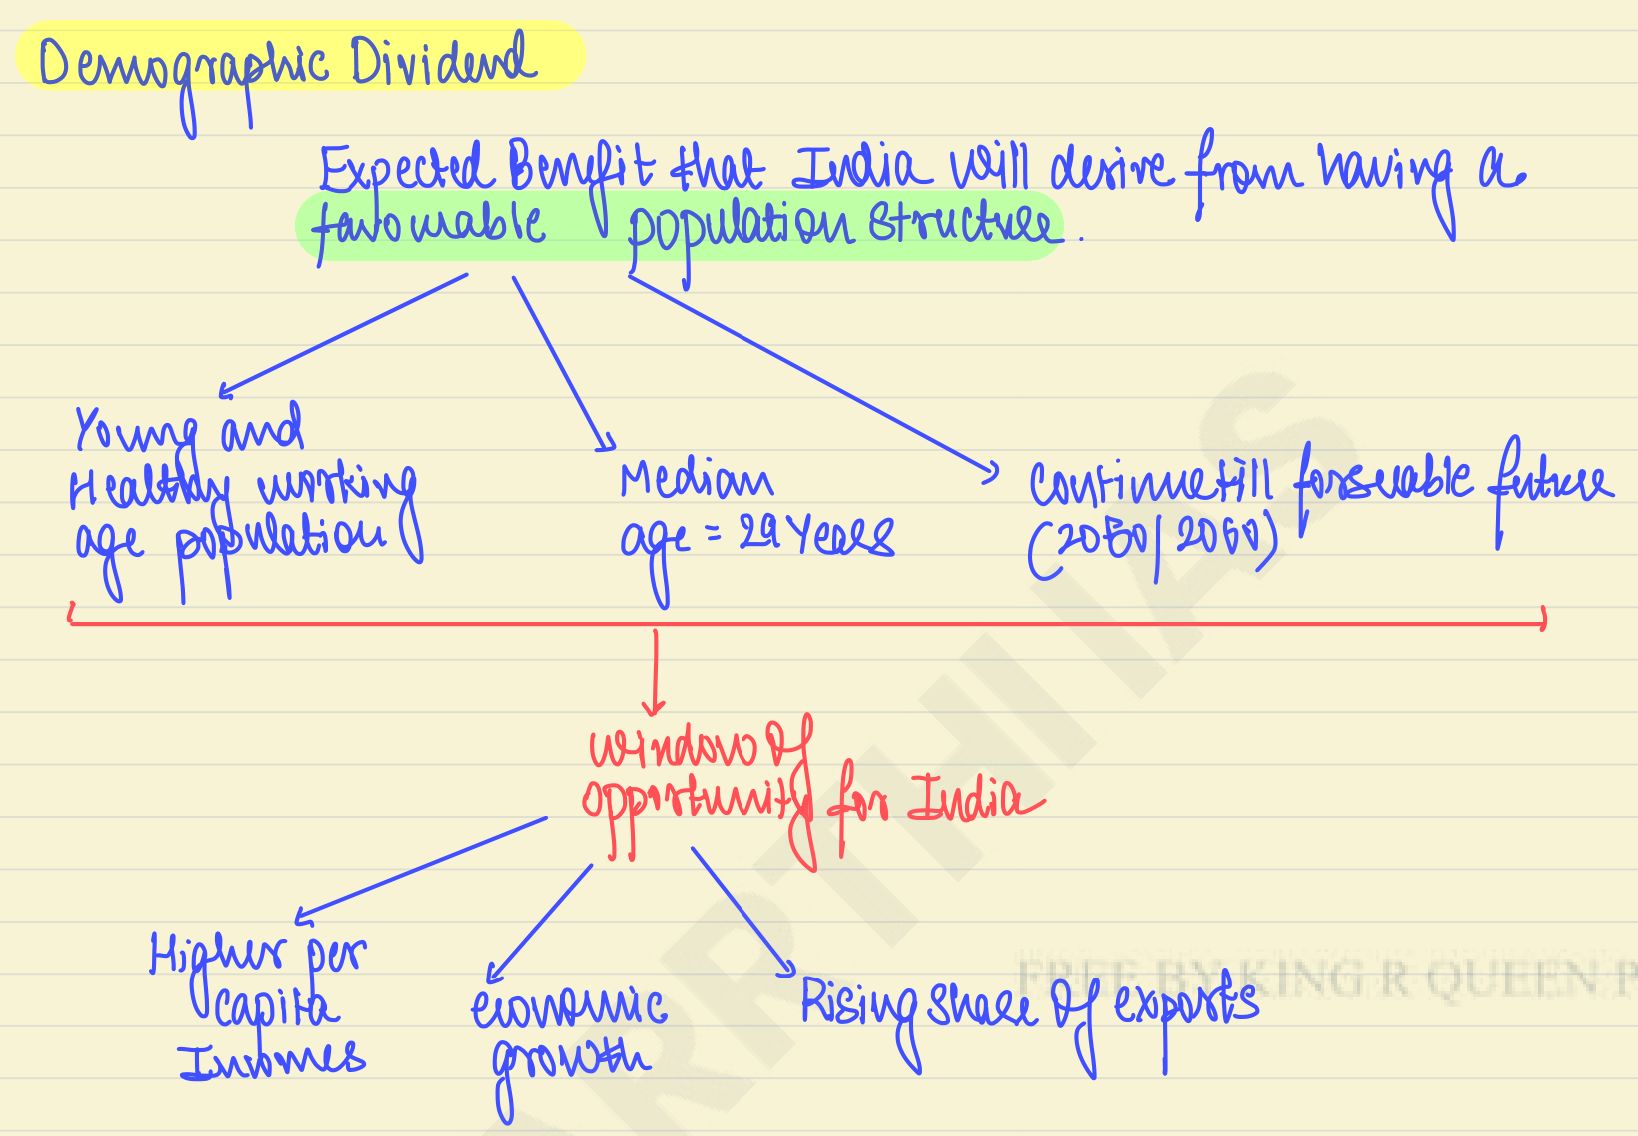 Demographic Dividend
Expected Benefit that India will derive from having a
favourable population structure.
Young and
Healthy working
age population
Median
age = 29 Years
Continue till forseeable future
(2050/2060)
Window Of
opportunity for India
Higher per
Capita
Incomes
economic
growth
Rising share Of exports
ARTHI IAS
FREE BY KING R QUEEN P